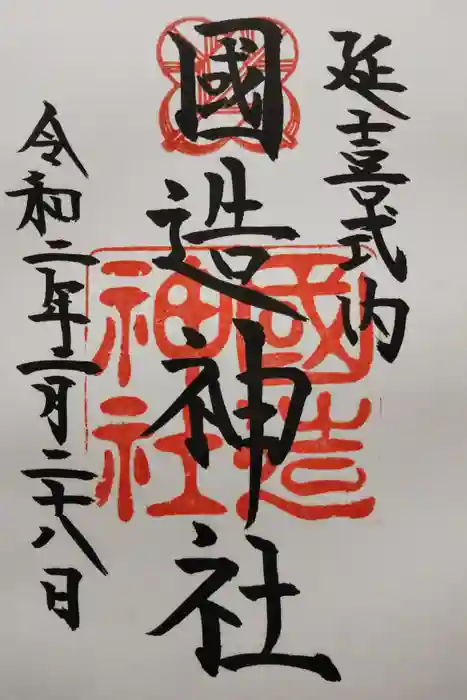 延喜式内
國造神社
令和二年二月二十八日
國造
神社